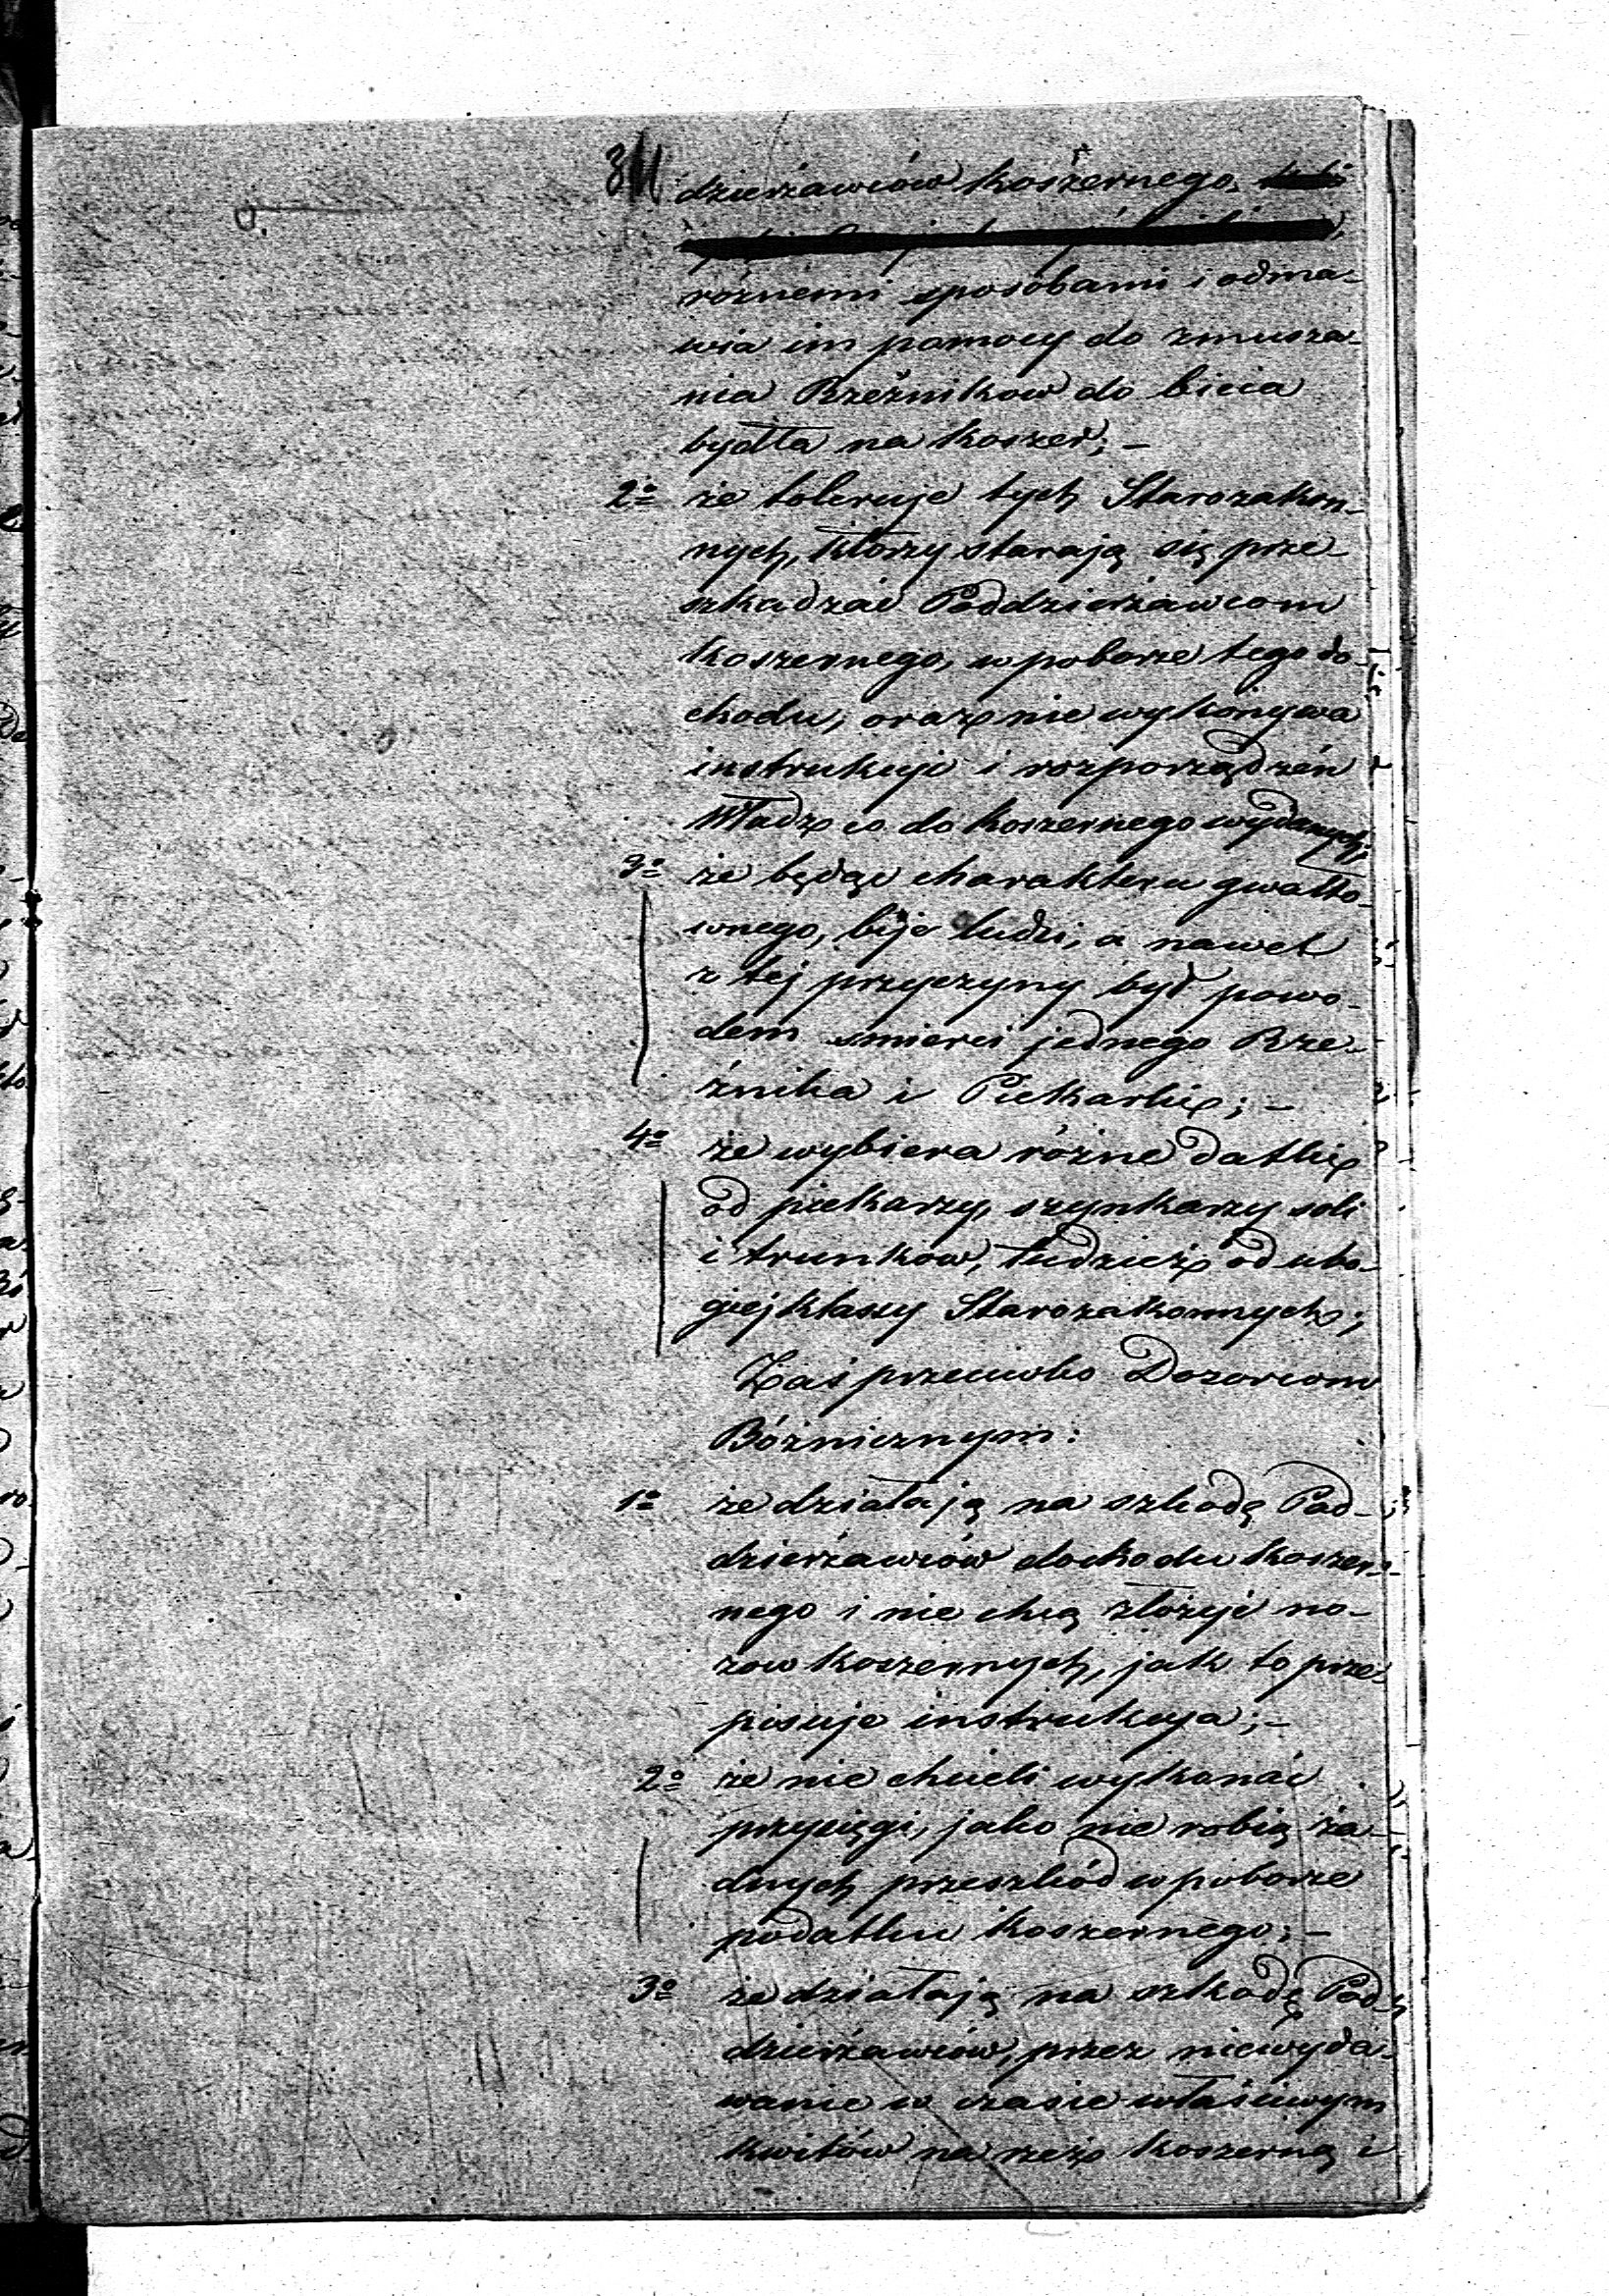 dzierżawców koszernego,
różnemi sposobami i odma-
wia im pomocy do zmusza-
nia Rzeźnikow do bicia
bydła na koszer; -
2o że toleruje tych Starozakon-
nych, którzy starają się prze-
szkadzać Poddzierżawcom
koszernego, w poborze tego do-
chodu, oraz nie wykonywa
instrukcji i rozporządzeń
Władz co do koszernego wydanych;
3o że będąc charakteru gwałto-
wnego, bije ludzi, a nawet
z tej przyczyny był powo-
dem smierci jednego Rze-
źnika i Piekarki; -
4o że wybiera różne datki
od piekarzy, szynkarzy soli
i trunkow, tudzież od ubo-
giej klassy Starozakonnych;
Zaś przeciwko Dozorcom
Bóżnicznym:
1o że działają na szkodę Pod-
dzierżawców dochodu koszer-
nego i nie chcą złożyć no-
żow koszernych, jak to prze-
pisuje instrukcya; -
2o że nie chcieli wykonać
przysięgi, jako nie robią ża-
dnych przeszkód w poborze
podatku koszernego; -
3o że działają na szkodę Pod-
dzierżawców, przez niewyda-
wanie w czasie właściwym
kwitów na rzeź koszerną i